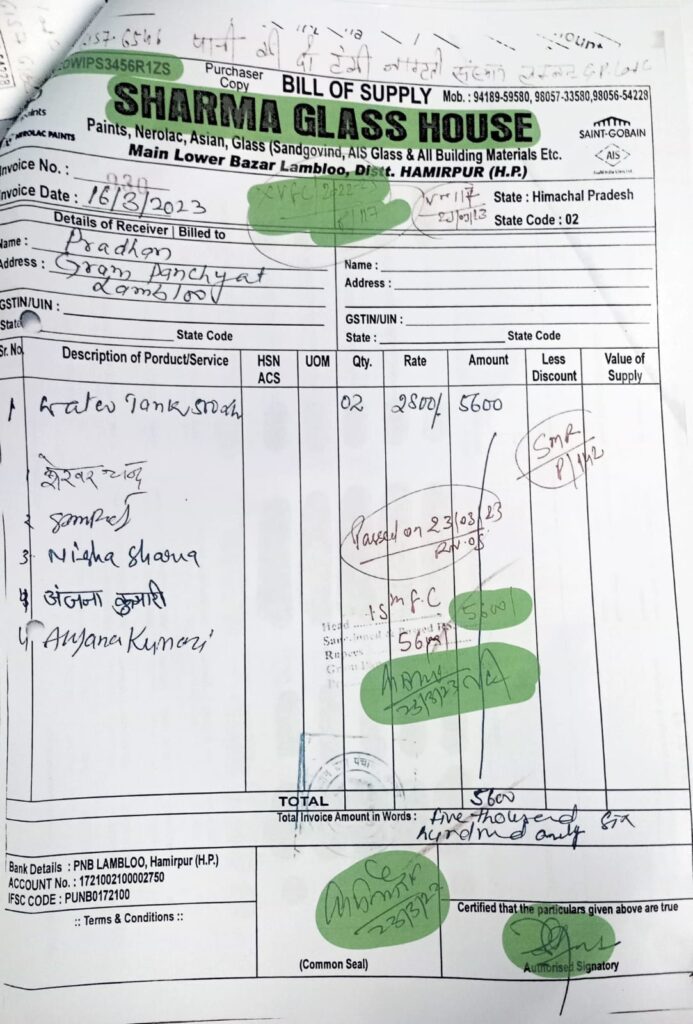 पानी की दो टंकी
OWIPS3456R1ZS
Purchaser Copy
BILL OF SUPPLY
Mob. : 94189-59580, 98057-33580, 98056-54228
SHARMA GLASS HOUSE
NEROLAC PAINTS
Paints, Nerolac, Asian, Glass (Sandgovind, AIS Glass & All Building Materials Etc.
SAINT-GOBAIN
AIS
Main Lower Bazar Lambloo, Distt. HAMIRPUR (H.P.)
Invoice No. : 930
Invoice Date : 16/3/2023
XVFC 2022-23
P/117
Vr 117
23/03/23
State : Himachal Pradesh
State Code : 02
Details of Receiver | Billed to
Name : Pradhan
Address : Gram Panchyat
Lambloo
GSTIN/UIN :
State
State Code
Name :
Address :
GSTIN/UIN :
State :
State Code
Sr. No. Description of Porduct/Service HSN ACS UOM Qty. Rate Amount Less Discount Value of Supply
1 Water Tank 02 2800/ 5600
SMR
P/142
2
3 Nisha Sharma
Passed on 23/03/23
4 अंजना कुमारी
5600/
Head
Rupees
4 Anjana Kumari
23/3/23
TOTAL 5600
Total Invoice Amount in Words : five thousand six
hundred only
Bank Details : PNB LAMBLOO, Hamirpur (H.P.)
ACCOUNT No. : 1721002100002750
IFSC CODE : PUNB0172100
:: Terms & Conditions ::
23/3/23
(Common Seal)
Certified that the particulars given above are true
Authorised Signatory